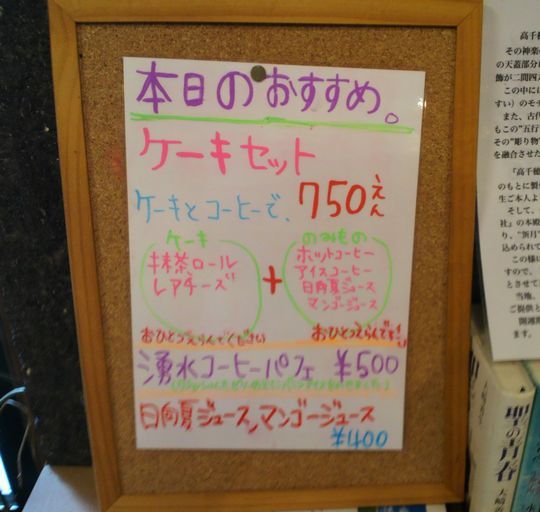 本日のおすすめ。
ケーキセット
ケーキとコーヒーで、750えん
ケーキ
抹茶ロール
レアチーズ
+
のみもの
ホットコーヒー
アイスコーヒー
日向夏ジュース
マンゴージュース
おひとつえらんでください
おひとつえらんです!
湧水コーヒーパフェ ¥500
日向夏ジュース、マンゴージュース
¥400
高千穂
その神楽
の天蓋部分
飾が二間四
この中に
すい)のそ
また、古代
もこの"五行
その"彫り物
を融合させた
「高千穂
のもとに製
生ご本人よ
そして、
社』の本殿
り、"祈月
込められて
この様に
すので、
とさせて
当地、
ご提供と
開運
ます。
聖の青春
大崎善